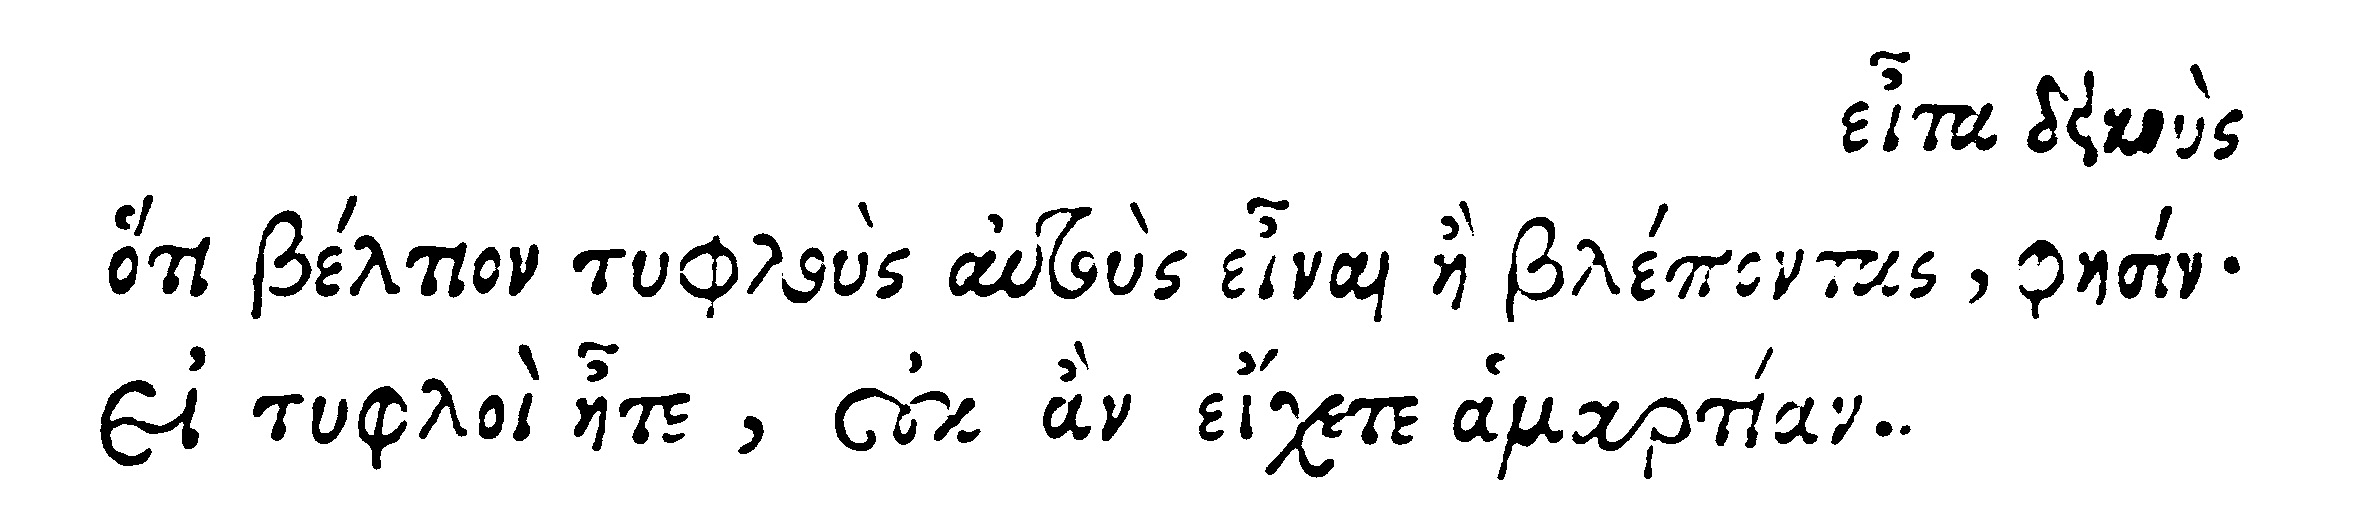 εἶτα δεικνὺς
ὅτι βέλτιον τυφλοὺς αὐτοὺς εἶναι ἢ βλέποντας, φησίν·
Εἰ τυφλοὶ ἦτε, οὐκ ἂν εἴχετε ἁμαρτίαν..